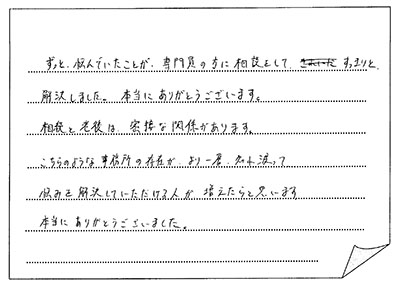 ずっと、悩んでいたことが、専門員の方に相談をして、すっきりと、
解決しました。本当にありがとうございます。
相続と老後は、密接な関係があります。
こちらのような事務所の存在が、より一層、知れ渡って
悩みを解決していただける人が、増えたらと思います
本当にありがとうございました。